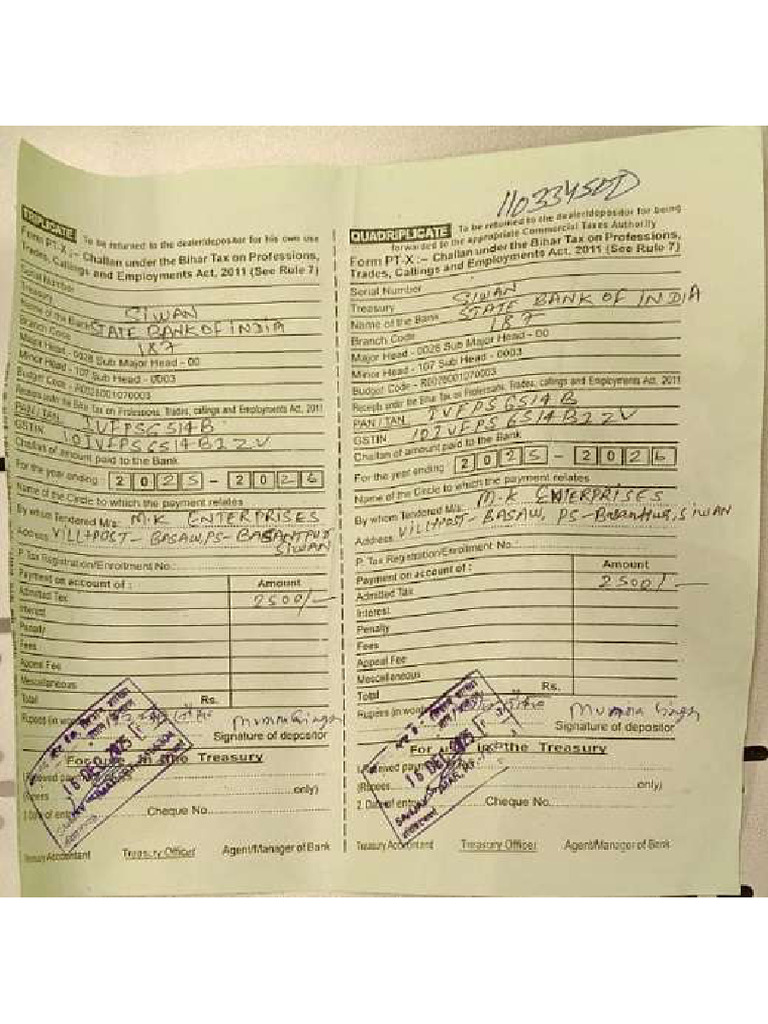 TRIPLICATE To be returned to the dealer/depositor for his own use
Form PT-X :- Challan under the Bihar Tax on Professions,
Trades, Callings and Employments Act, 2011 (See Rule 7)
Serial Number
Treasury SIWAN
Name of the Bank STATE BANK OF INDIA
Branch Code 187
Major Head - 0028 Sub Major Head - 00
Minor Head - 107 Sub Head - 0003
Budget Code - R0028001070003
Receipts under the Bihar Tax on Professions, Trades, callings and Employments Act, 2011
PAN / TAN. IVFPS6514B
GSTIN 10IVFPS6514B2ZV
Challan of amount paid to the Bank
For the year ending : 2025 - 2026
Name of the Circle to which the payment relates
By whom Tendered M/s: M.K ENTERPRISES
Address VILL+POST- BASAW, PS- BASANTPUR
SIWAN
P. Tax Registration/Enrollment No.:
Payment on account of : Amount
Admitted Tax 2500/-
Interest
Penalty
Fees
Appeal Fee
Miscellaneous
Total Rs.
Rupees (in words)
Munna Singh
Signature of depositor
For use in the Treasury
1. Received payment
(Rupees only)
16 DEC 2025
2. Date of entry Cheque No.
Treasury Accountant Treasury Officer Agent/Manager of Bank
11033450D
QUADRIPLICATE To be returned to the dealer/depositor for being
forwarded to the appropriate Commercial Taxes Authority
Form PT-X :- Challan under the Bihar Tax on Professions,
Trades, Callings and Employments Act, 2011 (See Rule 7)
Serial Number
Treasury SIWAN
Name of the Bank STATE BANK OF INDIA
Branch Code 187
Major Head - 0028 Sub Major Head - 00
Minor Head - 107 Sub Head - 0003
Budget Code - R0028001070003
Receipts under the Bihar Tax on Professions, Trades, callings and Employments Act, 2011
PAN / TAN. IVFPS6514B
GSTIN 10IVFPS6514B2ZV
Challan of amount paid to the Bank
For the year ending : 2025 - 2026
Name of the Circle to which the payment relates
By whom Tendered M/s: M.K ENTERPRISES
Address VILL+POST- BASAW, PS- Basantpur, SIWAN
P. Tax Registration/Enrollment No.:
Payment on account of : Amount
Admitted Tax 2500/-
Interest
Penalty
Fees
Appeal Fee
Miscellaneous
Total Rs.
Rupees (in words)
Munna Singh
Signature of depositor
For use in the Treasury
1. Received payment
(Rupees only)
16 DEC 2025
2. Date of entry Cheque No.
Treasury Accountant Treasury Officer Agent/Manager of Bank